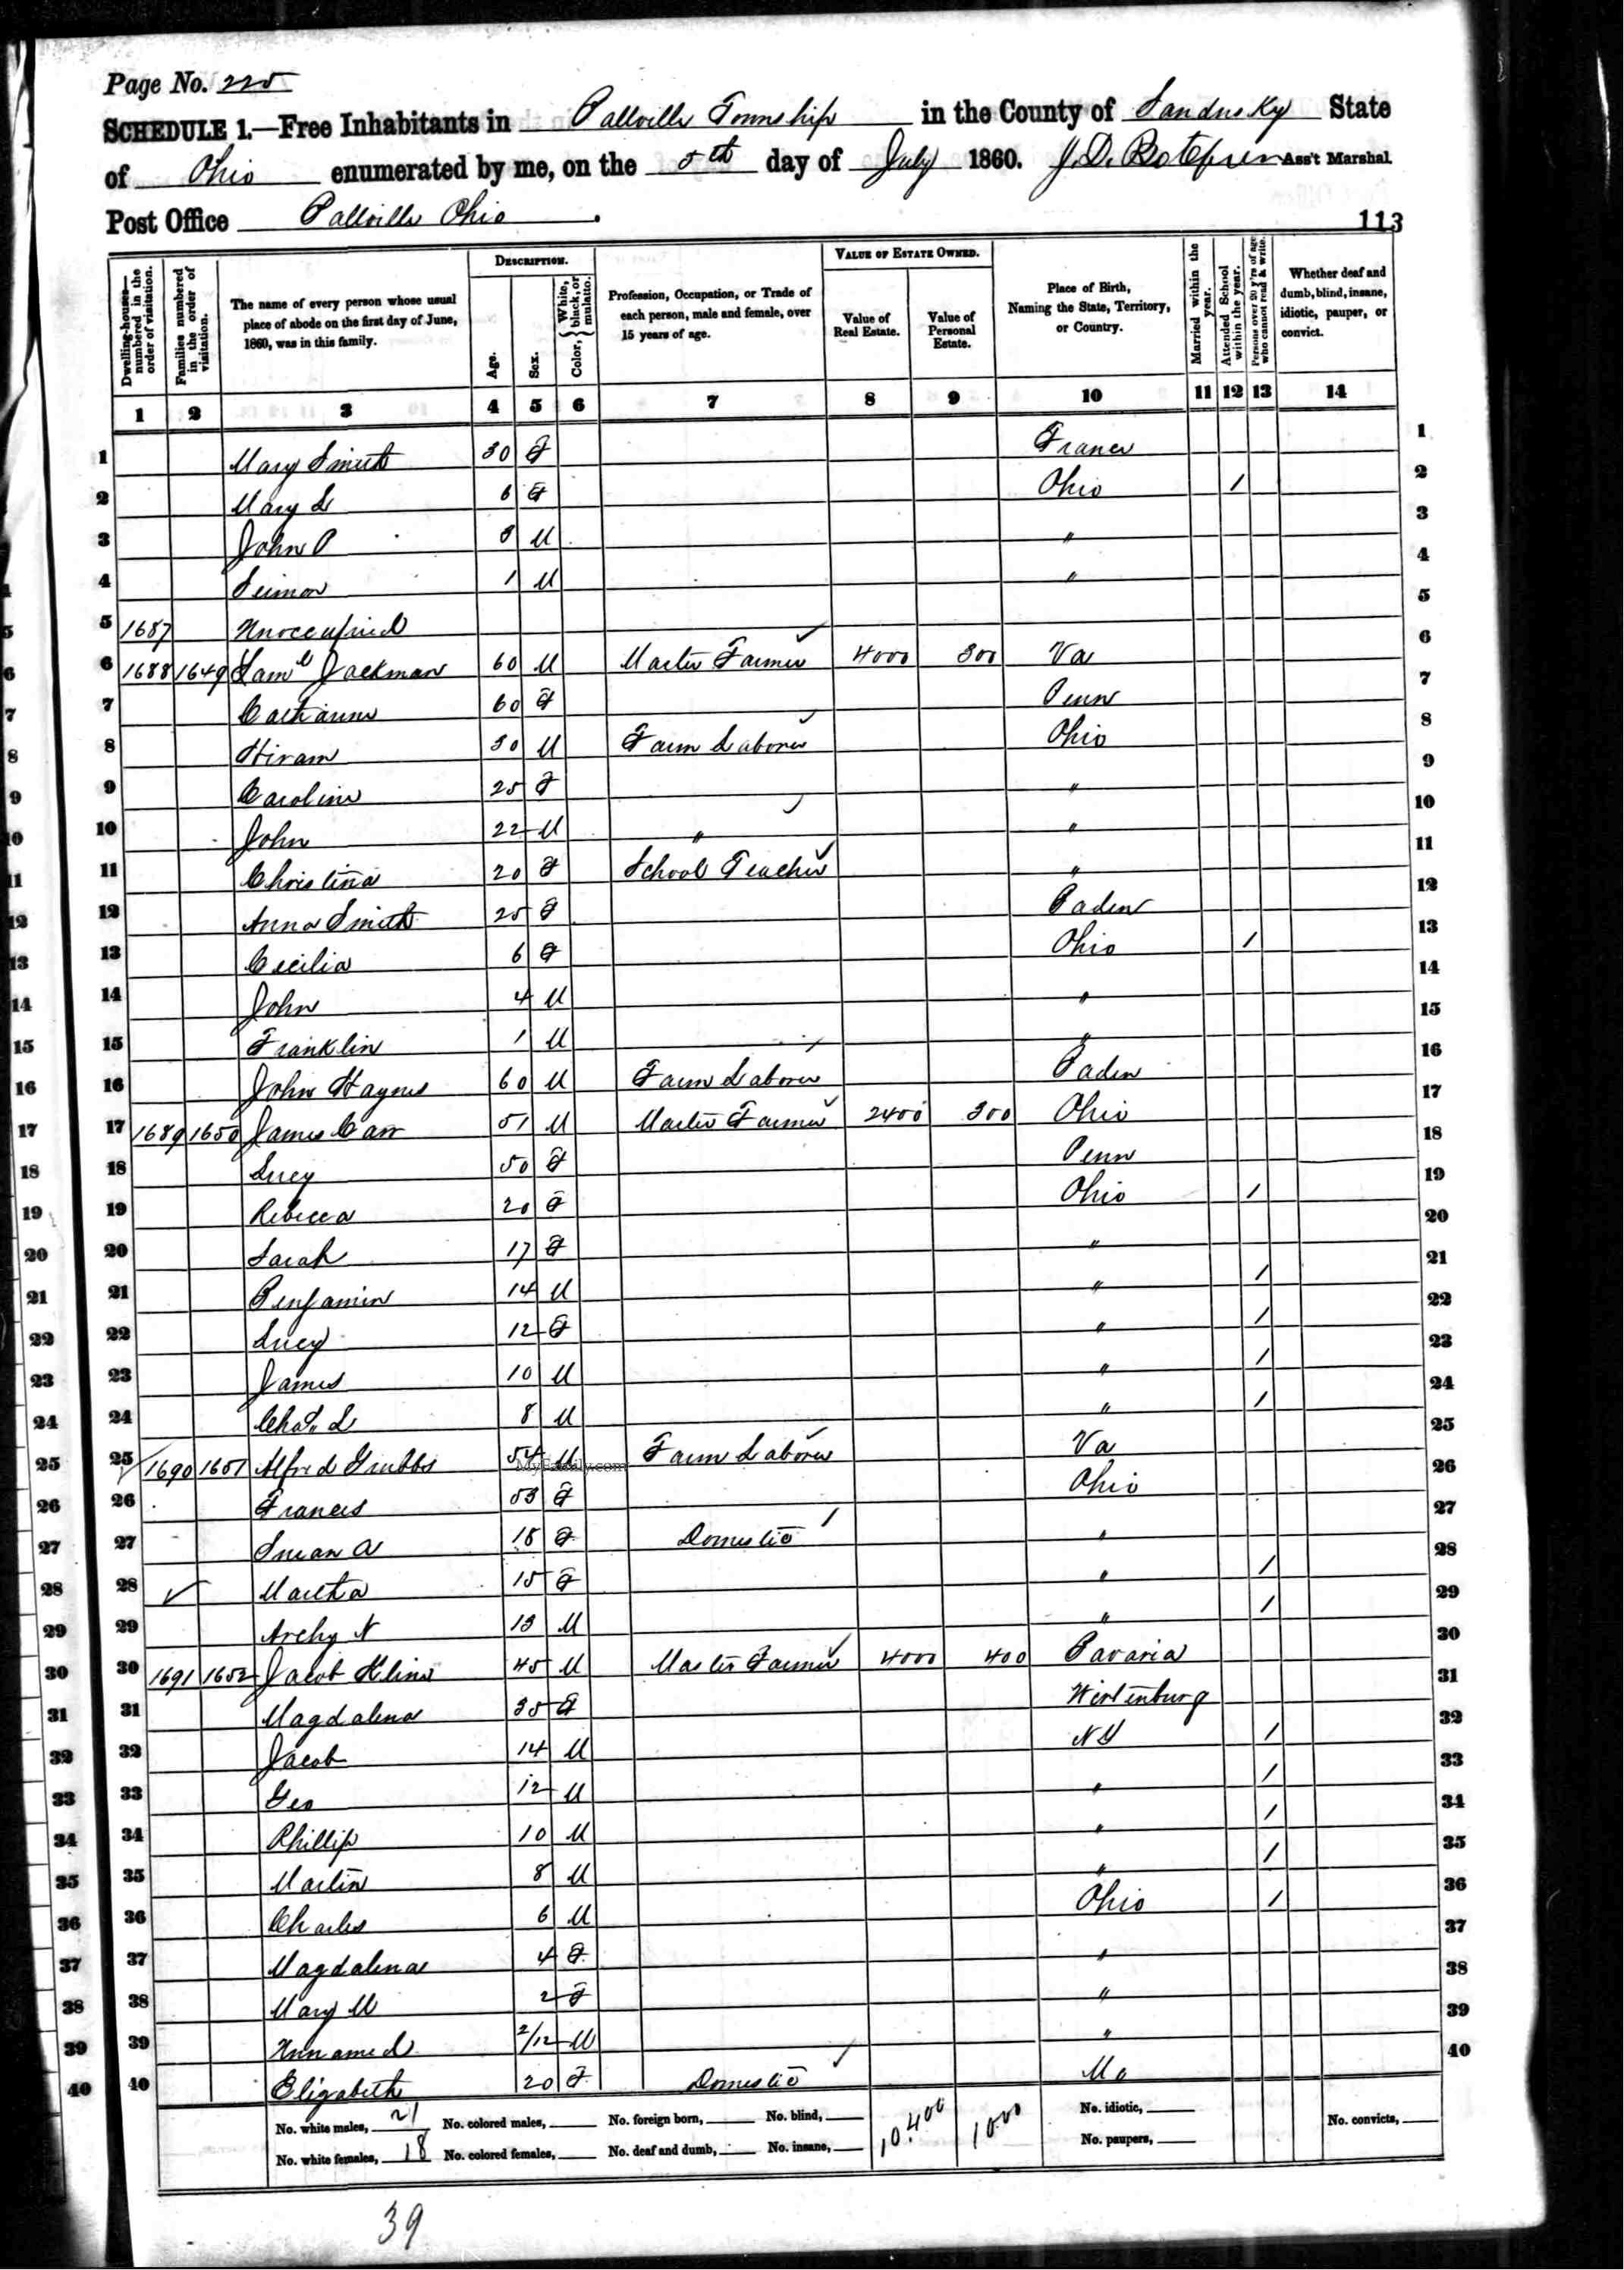 Page No. 225
SCHEDULE 1.—Free Inhabitants in Ballville Township in the County of Sandusky State
of Ohio enumerated by me, on the 5th day of July 1860. J. D. Ass't Marshal
Post Office Ballville Ohio.
113
Dwelling-houses—numbered in the order of visitation.
Families numbered in the order of visitation.
The name of every person whose usual place of abode on the first day of June, 1860, was in this family.
DESCRIPTION.
Age.
Sex.
Color, { White, black, or mulatto.
Profession, Occupation, or Trade of each person, male and female, over 15 years of age.
VALUE OF ESTATE OWNED.
Value of Real Estate.
Value of Personal Estate.
Place of Birth, Naming the State, Territory, or Country.
Married within the year.
Attended School within the year.
Persons over 20 y'rs of age who cannot read & write.
Whether deaf and dumb, blind, insane, idiotic, pauper, or convict.
1 2 3 4 5 6 7 8 9 10 11 12 13 14
1 Mary Smith 30 F France 1
2 Mary L 6 F Ohio / 2
3 John P 3 M " 3
4 Simon 1 M " 4
5 1687 Unoccupied 5
6 1688 1649 Saml Jackman 60 M Master Farmer 4000 300 Va 6
7 Catharine 60 F Penn 7
8 Hiram 30 M Farm Laborer Ohio 8
9 Caroline 25 F " 9
10 John 22 M " " 10
11 Christina 20 F School Teacher " 11
12 Anna Smith 25 F Baden 12
13 Cecilia 6 F Ohio / 13
14 John 4 M " 14
15 Franklin 1 M " 15
16 John Haynes 60 M Farm Laborer Baden 16
17 1689 1650 James Carr 51 M Master Farmer 2400 300 Ohio 17
18 Lucy 50 F Penn 18
19 Rebecca 20 F Ohio / 19
20 Sarah 17 F " 20
21 Benjamin 14 M " / 21
22 Lucy 12 F " / 22
23 James 10 M " / 23
24 Chas. L 8 M " / 24
25 1690 1651 Alfred Grubbs 54 M Farm Laborer Va 25
MyFamily.com
26 Frances 53 F Ohio 26
27 Susan A 18 F Domestic " 27
28 Martha 15 F " / 28
29 Archy N 13 M " / 29
30 1691 1652 Jacob Kline 45 M Master Farmer 4000 400 Bavaria 30
31 Magdalena 35 F Wirtenburg 31
32 Jacob 14 M NY / 32
33 Geo 12 M " / 33
34 Phillip 10 M " / 34
35 Martin 8 M " / 35
36 Charles 6 M Ohio / 36
37 Magdalena 4 F " 37
38 Mary M 2 F " 38
39 Unnamed 2/12 M " 39
40 Elizabeth 20 F Domestic 40
No. white males, 21 No. colored males, No. foreign born, No. blind, 10,400 1000 No. idiotic, No. convicts,
No. white females, 18 No. colored females, No. deaf and dumb, No. insane, No. paupers,
39